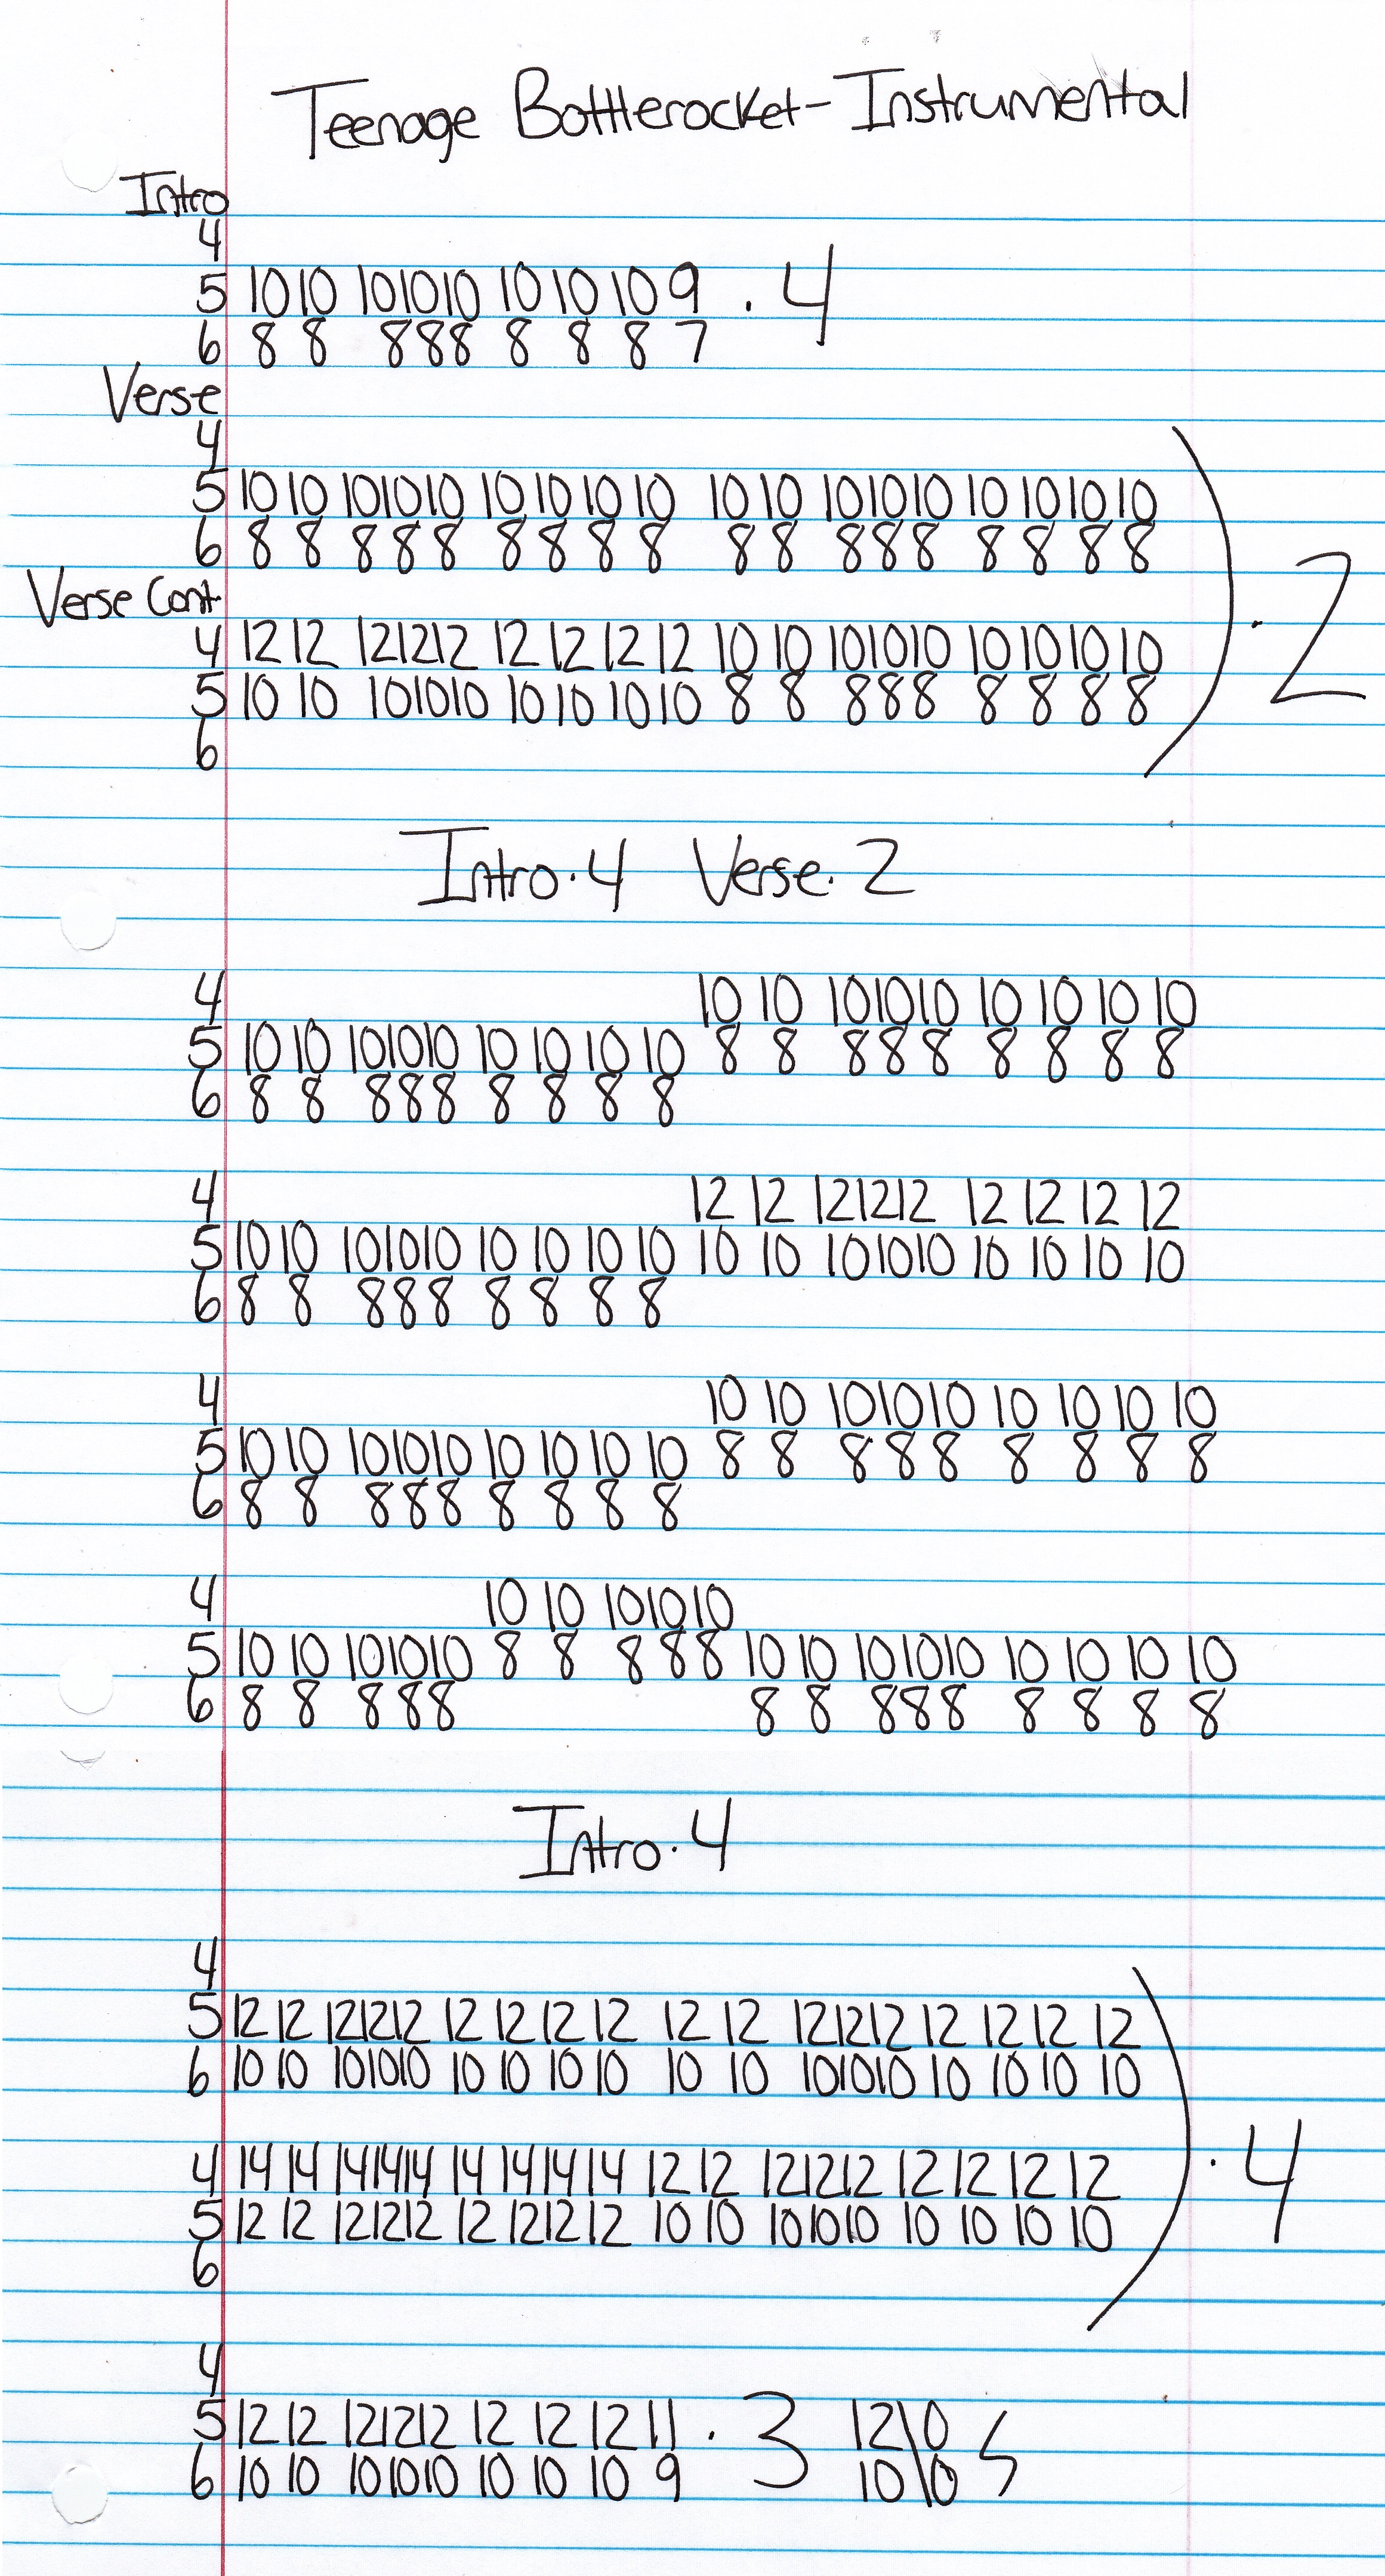 Teenage Bottlerocket - Instrumental
Intro
4
5 10 10 10 10 10 10 10 10 9 . 4
6 8 8 8 8 8 8 8 8 7
Verse
4
5 10 10 10 10 10 10 10 10 10 10 10 10 10 10 10 10 10 10
6 8 8 8 8 8 8 8 8 8 8 8 8 8 8 8 8 8 8 . 2
Verse Cont.
4 12 12 12 12 12 12 12 12 12 10 10 10 10 10 10 10 10 10
5 10 10 10 10 10 10 10 10 10 8 8 8 8 8 8 8 8 8
6
Intro . 4 Verse . 2
4 10 10 10 10 10 10 10 10 10
5 10 10 10 10 10 10 10 10 10 8 8 8 8 8 8 8 8 8
6 8 8 8 8 8 8 8 8 8
4 12 12 12 12 12 12 12 12 12
5 10 10 10 10 10 10 10 10 10 10 10 10 10 10 10 10 10 10
6 8 8 8 8 8 8 8 8 8
4 10 10 10 10 10 10 10 10 10
5 10 10 10 10 10 10 10 10 10 8 8 8 8 8 8 8 8 8
6 8 8 8 8 8 8 8 8 8
4 10 10 10 10 10
5 10 10 10 10 10 8 8 8 8 8 10 10 10 10 10 10 10 10 10
6 8 8 8 8 8 8 8 8 8 8 8 8 8 8
Intro . 4
4
5 12 12 12 12 12 12 12 12 12 12 12 12 12 12 12 12 12 12
6 10 10 10 10 10 10 10 10 10 10 10 10 10 10 10 10 10 10
4 14 14 14 14 14 14 14 14 14 12 12 12 12 12 12 12 12 12 . 4
5 12 12 12 12 12 12 12 12 12 10 10 10 10 10 10 10 10 10
6
4
5 12 12 12 12 12 12 12 12 11 . 3 12\0
6 10 10 10 10 10 10 10 10 9 10\0